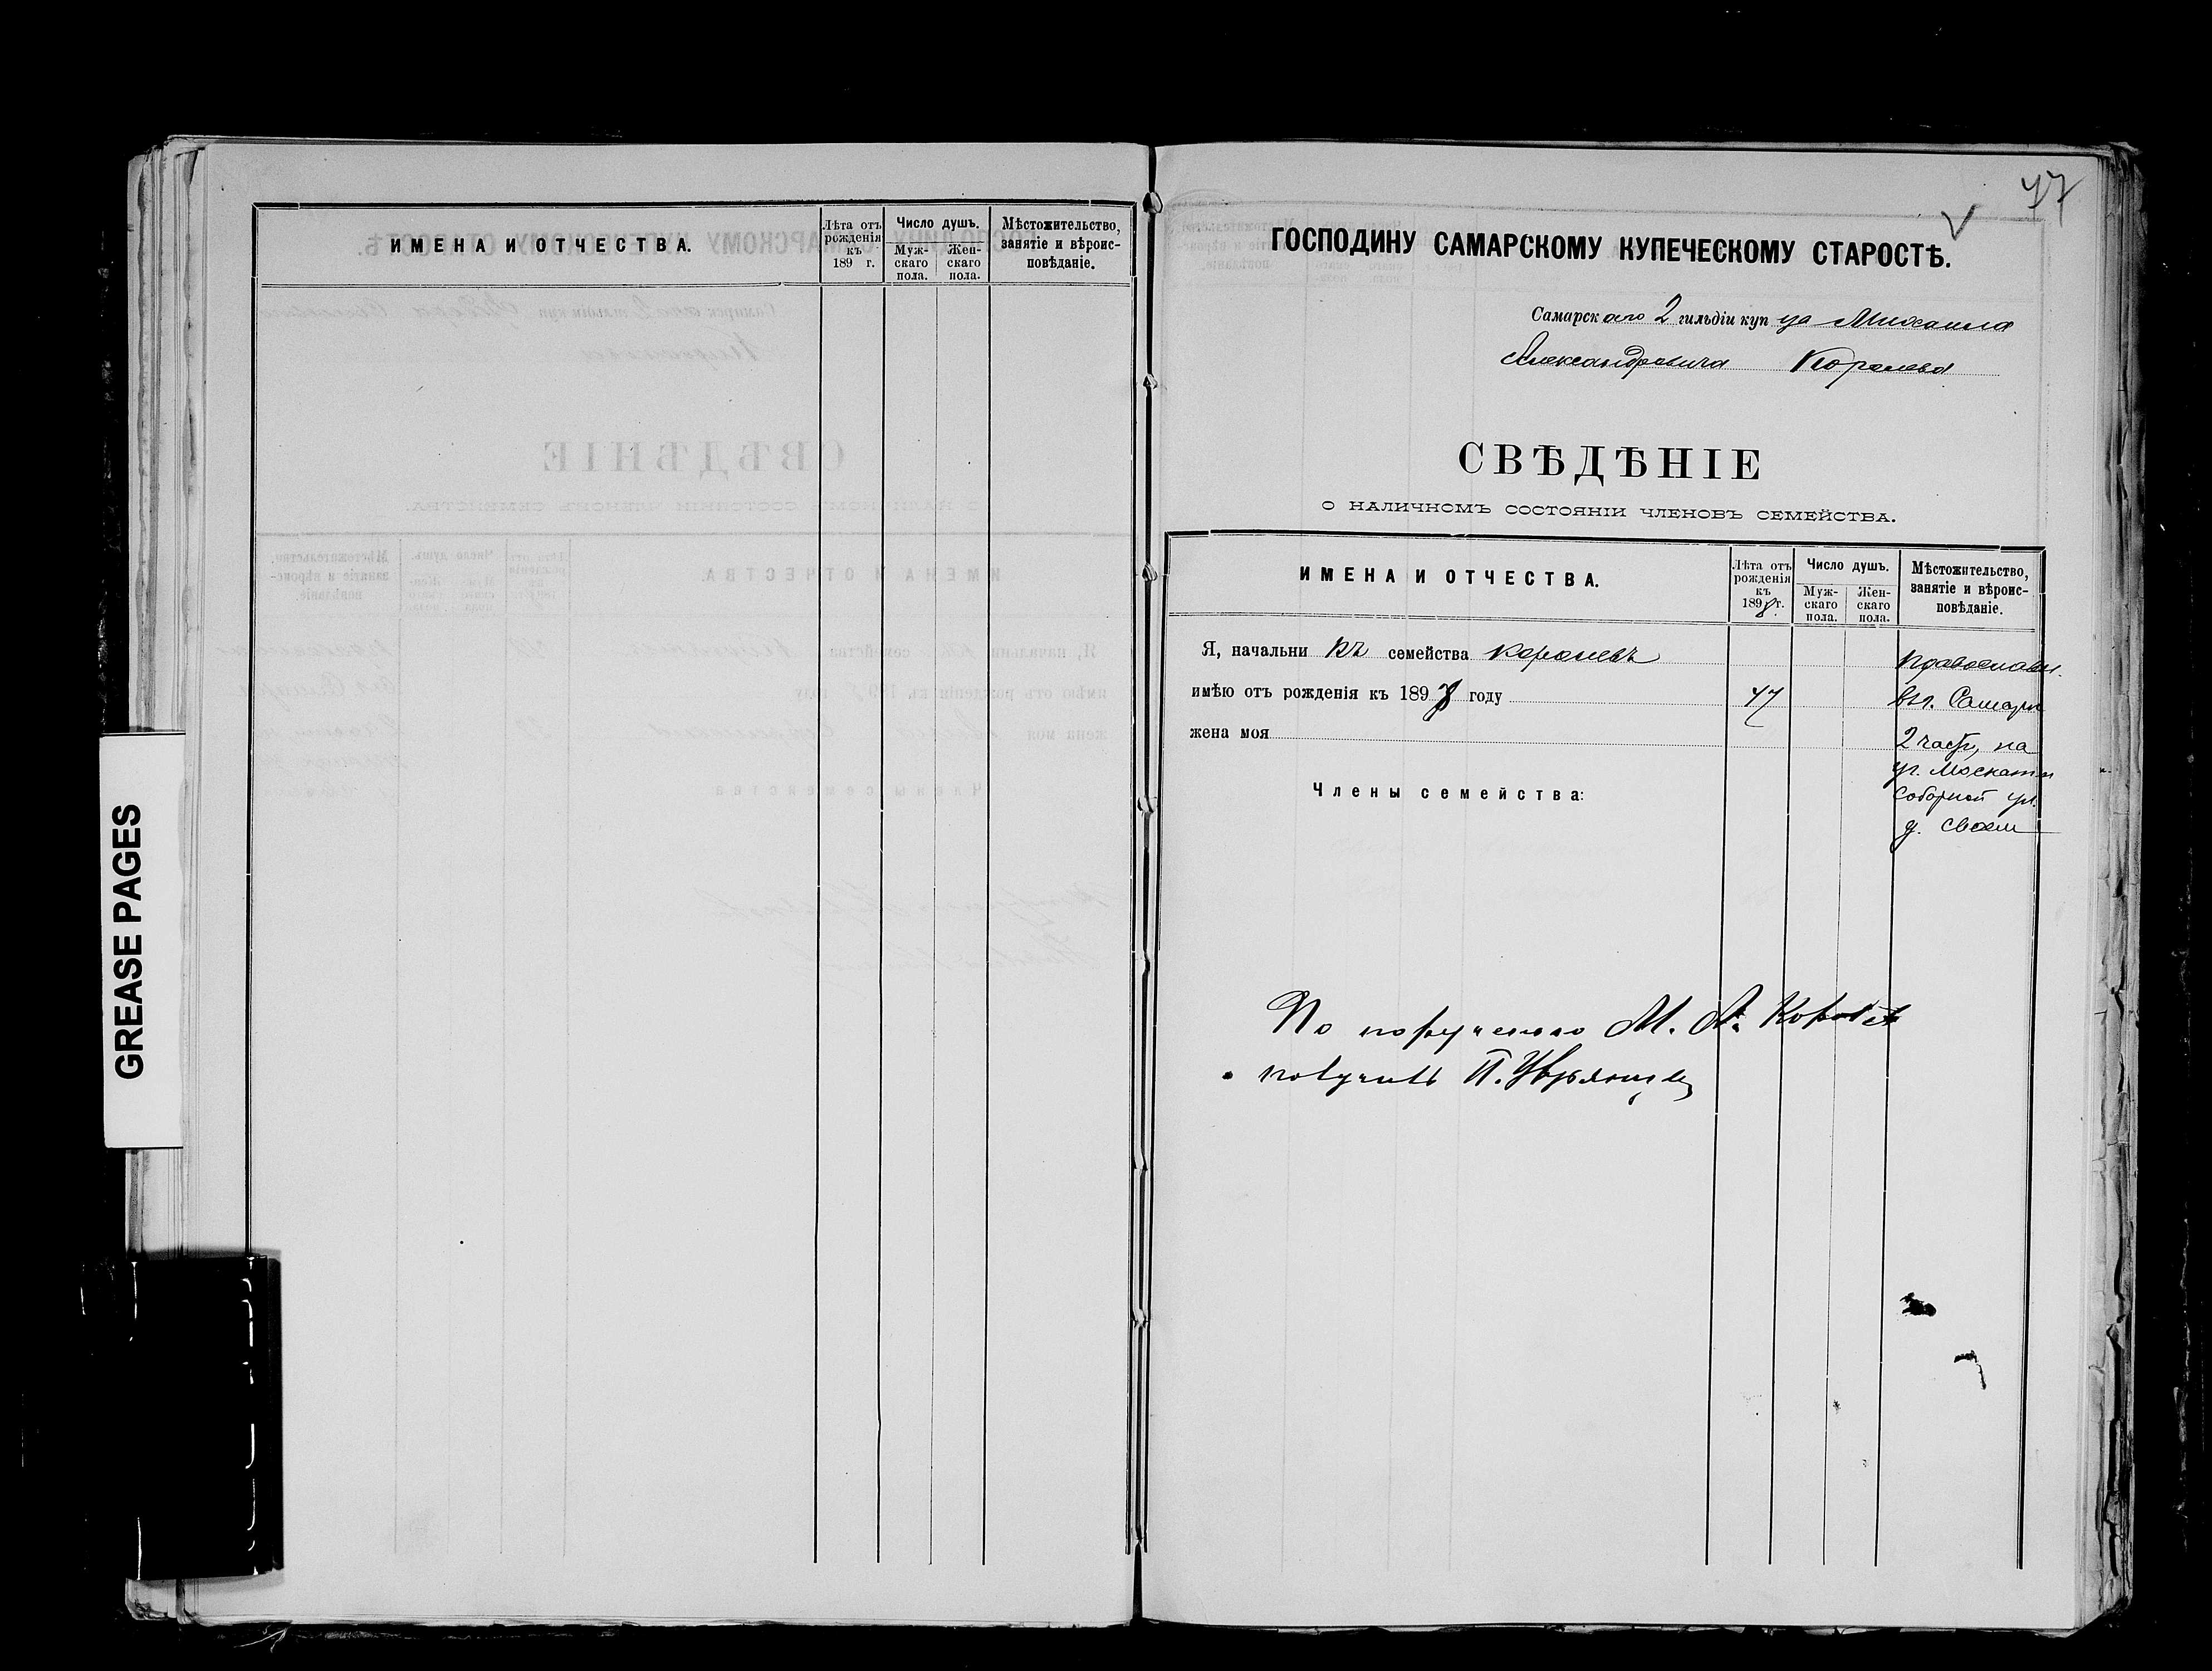 ИМЕНА И ОТЧЕСТВА.
Лѣта отъ рожденія къ 189 г.
Число душъ.
Муж-скаго пола.
Жен-скаго пола.
Мѣстожительство, занятіе и вѣроис-повѣданіе.
GREASE PAGES
47
V
ГОСПОДИНУ САМАРСКОМУ КУПЕЧЕСКОМУ СТАРОСТѢ.
Самарскаго 2 гильдіи купца Михаила
Александровича Королева
СВѢДѢНІЕ
О НАЛИЧНОМЪ СОСТОЯНІИ ЧЛЕНОВЪ СЕМЕЙСТВА.
ИМЕНА И ОТЧЕСТВА.
Лѣта отъ рожденія къ 1898 г.
Число душъ.
Муж-скаго пола.
Жен-скаго пола.
Мѣстожительство, занятіе и вѣроис-повѣданіе.
Я, начальникъ семейства Королевъ
имѣю отъ рожденія къ 1898 году 47
жена моя
Члены семейства:
православн.
въ г. Самарѣ
2 части, на
уг.
Соборной ул.
д. своем
По порученію М. А. Королев
получилъ П.